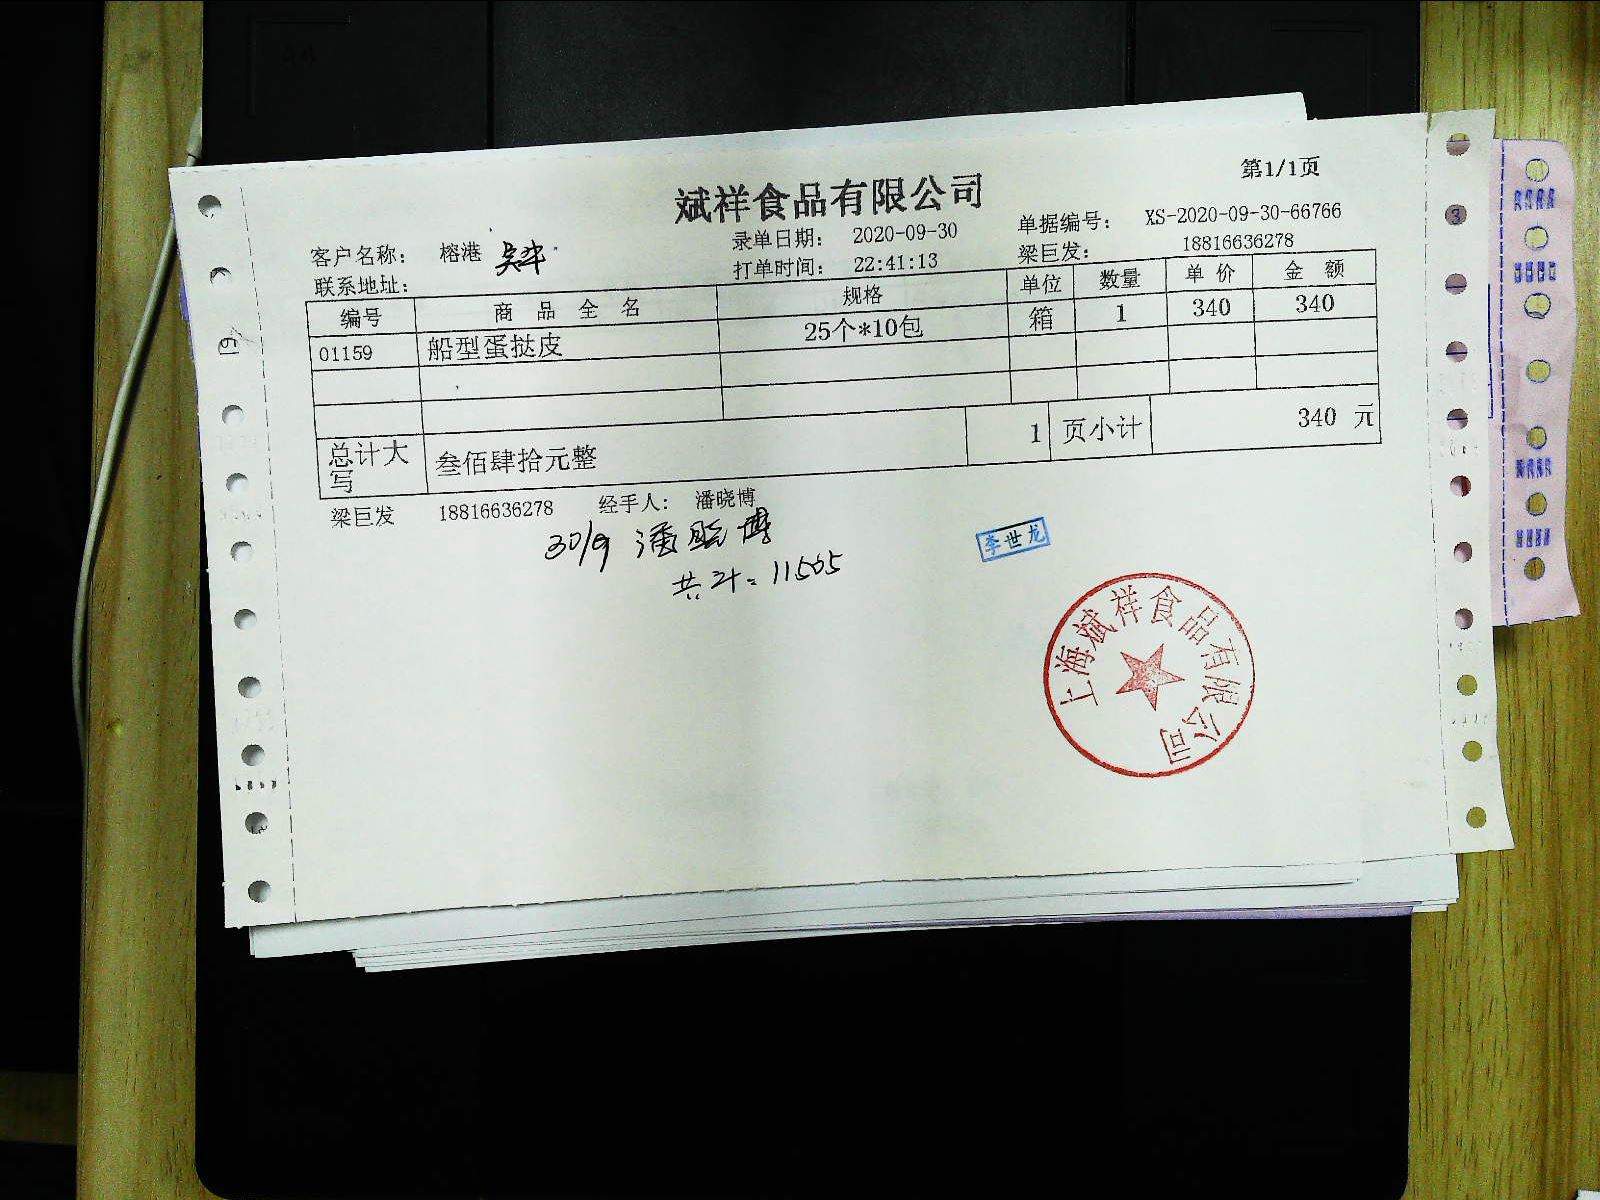 第1/1页
斌祥食品有限公司
客户名称： 榕港 录单日期： 2020-09-30 单据编号： XS-2020-09-30-66766
联系地址： 打单时间： 22:41:13 梁巨发： 18816636278
编号 商 品 全 名 规格 单位 数量 单 价 金 额
01159 船型蛋挞皮 25个*10包 箱 1 340 340
总计大写 叁佰肆拾元整 1 页小计 340 元
梁巨发 18816636278 经手人： 潘晓博
30/9 潘晓博
共计= 11565
李世龙
上海斌祥食品有限公司